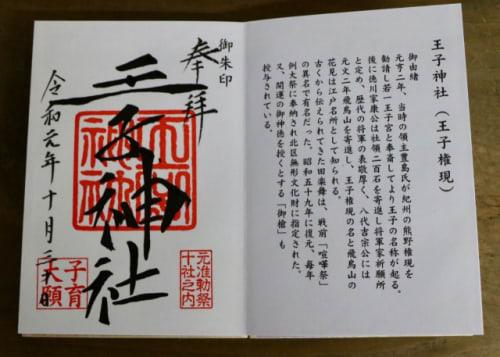 王子神社（王子権現）
御由緒
元亨二年、当時の領主豊島氏が紀州の熊野権現を
勧請し若一王子宮と奉斎してより王子の名称が起る。
後に徳川家康公は社領二百石を寄進し将軍家祈願所
と定め、歴代の将軍の表敬厚く、八代吉宗公には
元文二年飛鳥山を寄進し、王子権現の名と飛鳥山の
花見は江戸名所として知られる。
古くから伝えられてきた田楽舞は、戦前「喧嘩祭」
の異名で有名だった。昭和五十九年に復元、毎年
例大祭に奉納され北区無形文化財に指定された。
又、開運の御神徳を授くとする「御槍」も
授与されている。
御朱印
奉拝
王子神社
令和元年十月三十日
元准勅祭
十社之内
子育
大願